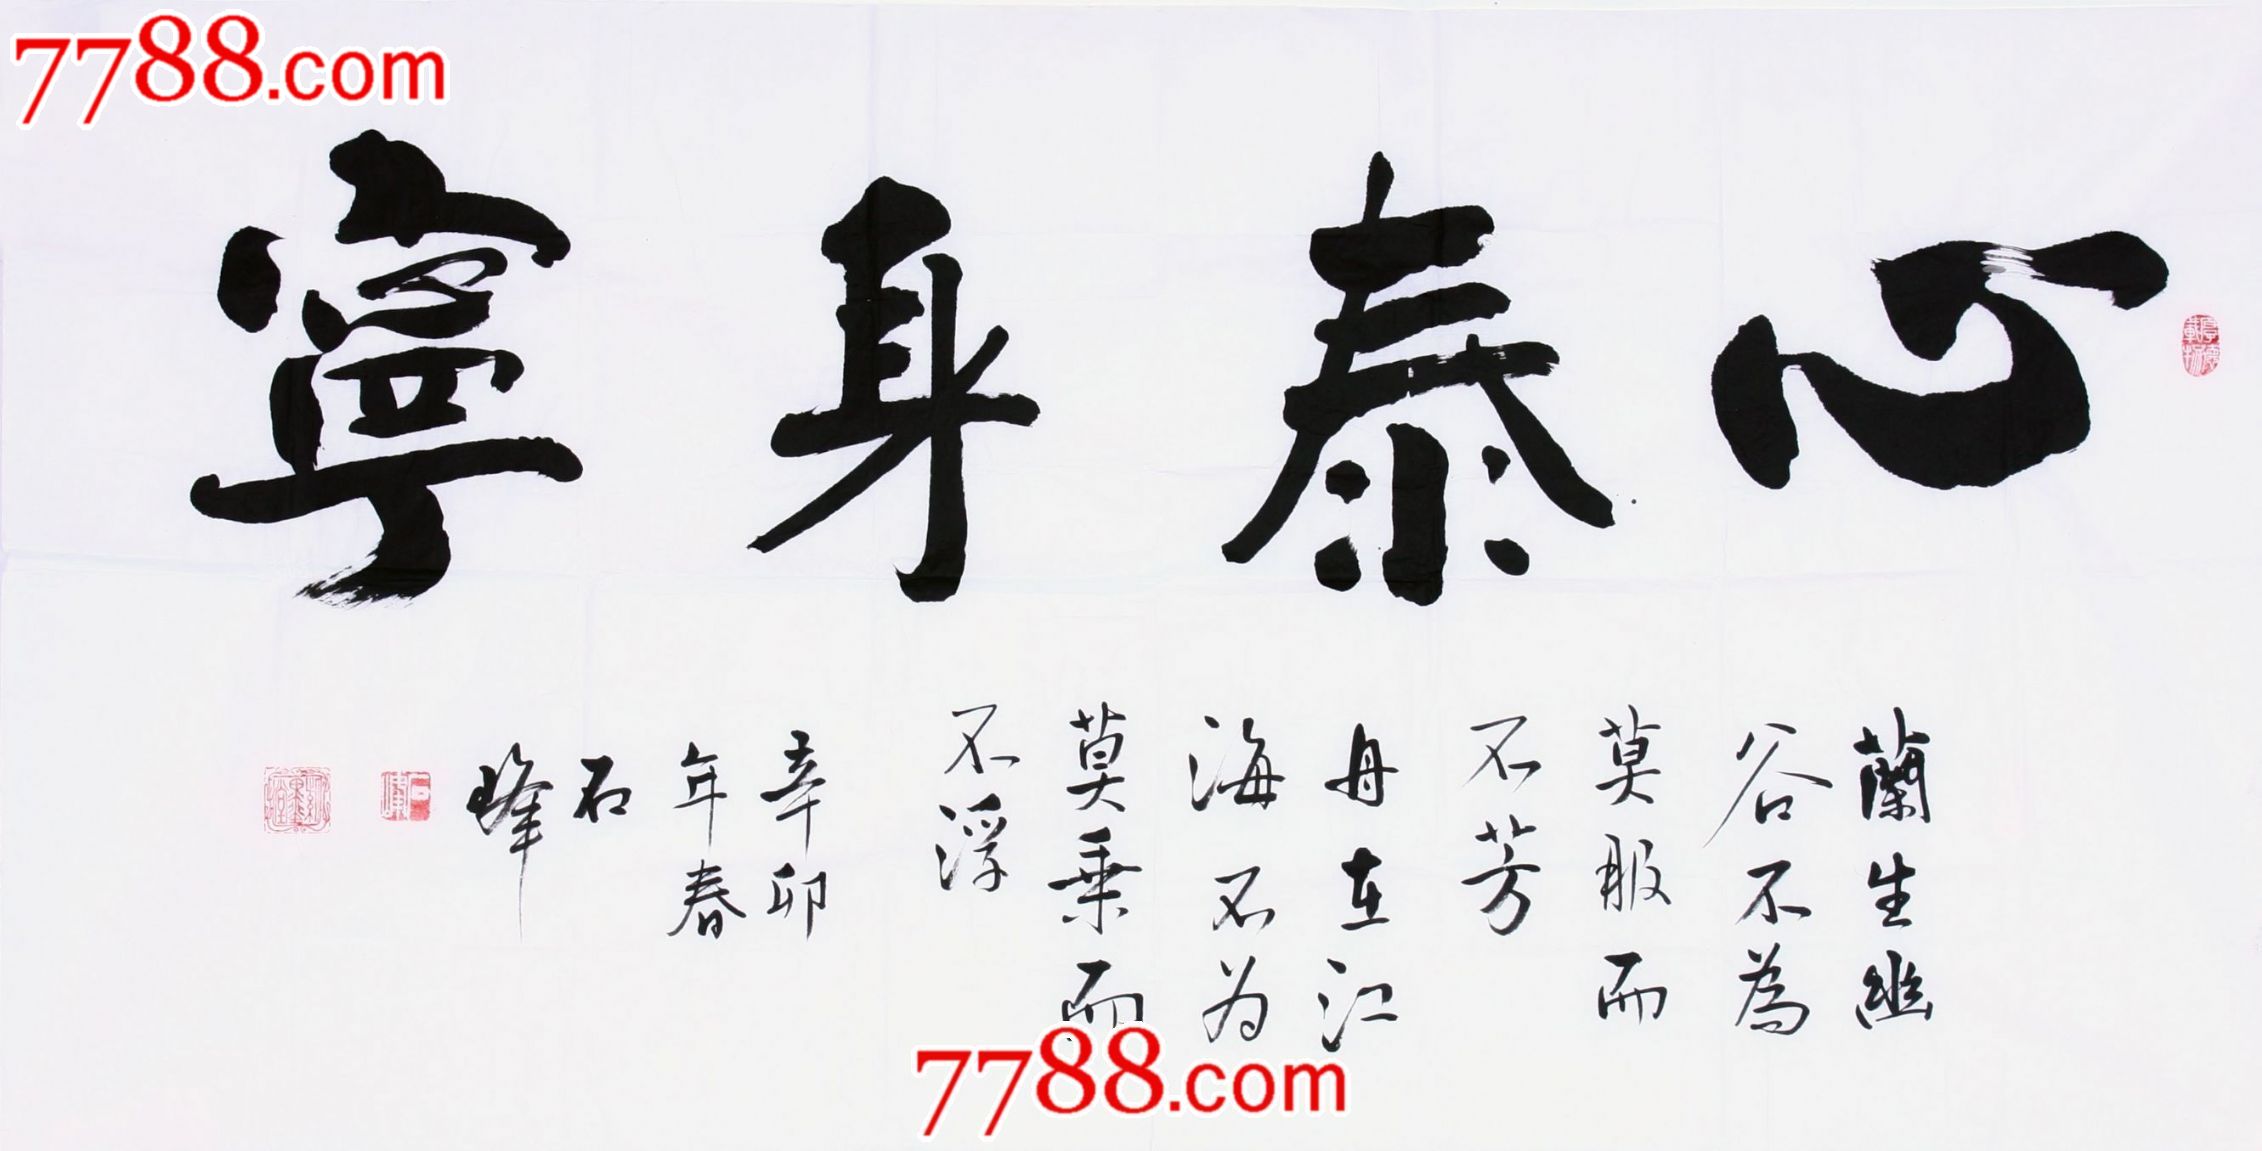 7788.com
心泰身寧
蘭生幽
谷不為
莫服而
不芳
舟在江
海不为
莫乗而
不浮
辛卯
年春
石
峰
厚德載物
7788.com